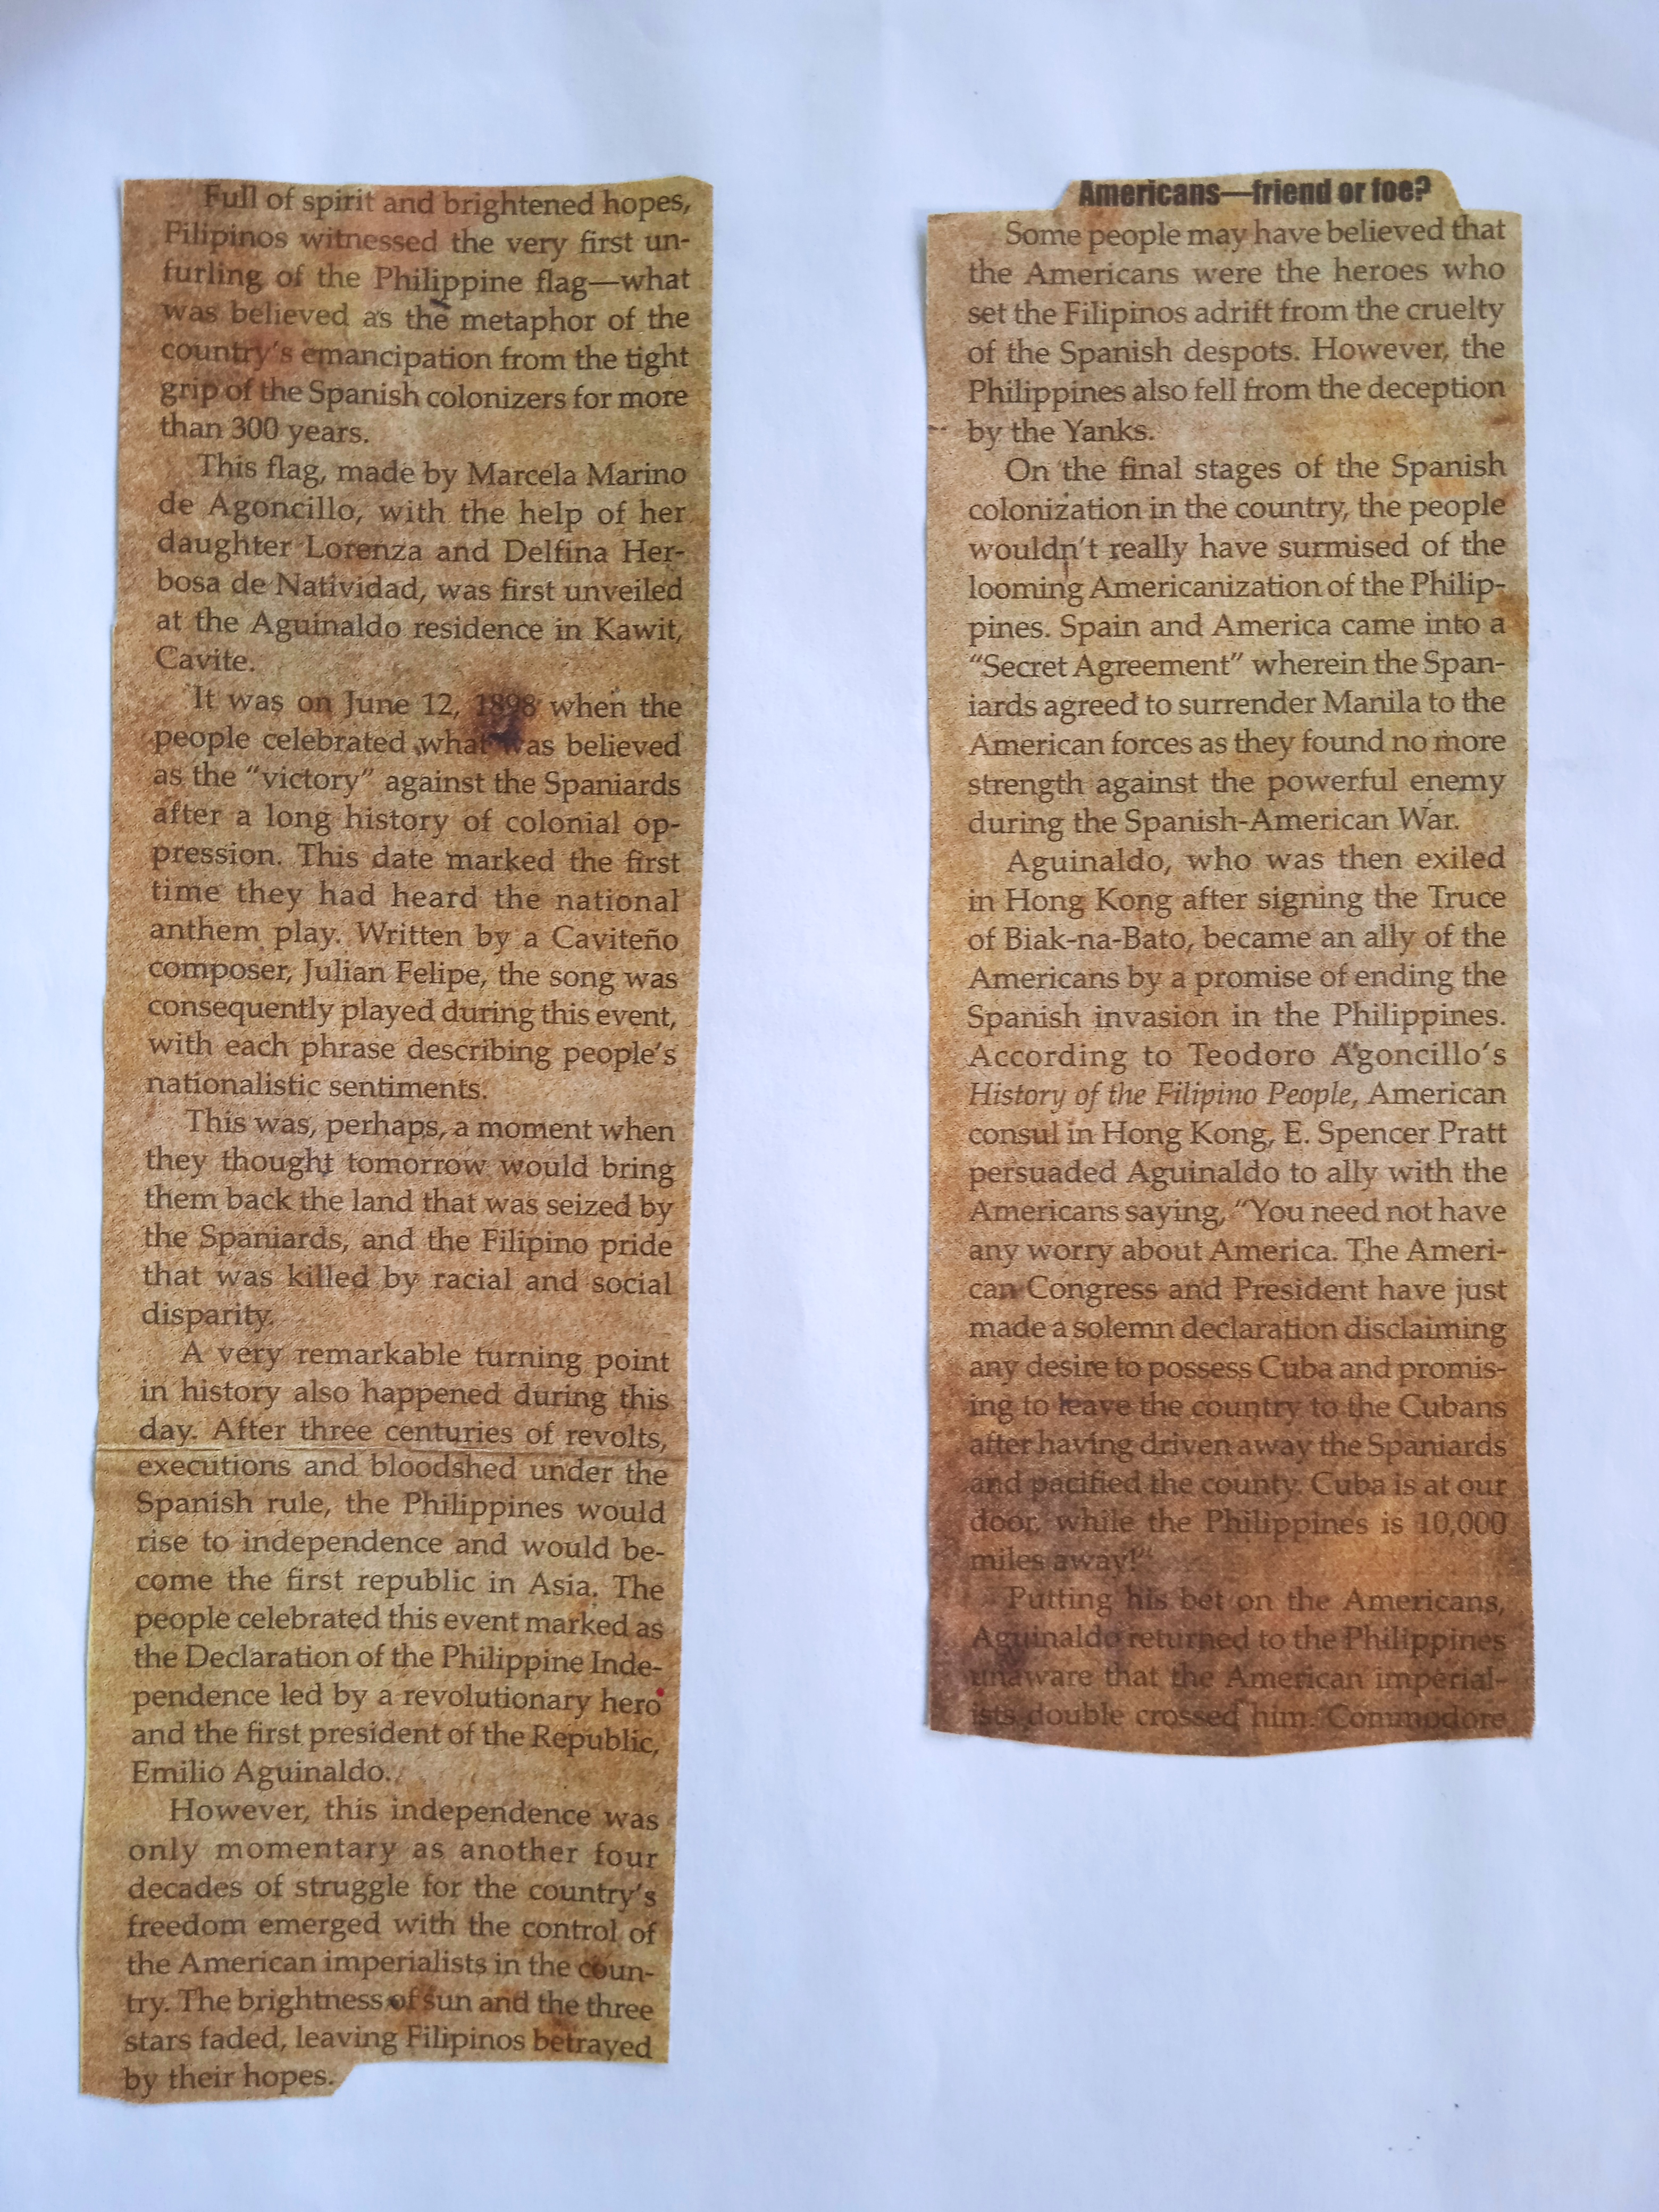 Full of spirit and brightened hopes,
Filipinos witnessed the very first un-
furling of the Philippine flag—what
was believed as the metaphor of the
country's emancipation from the tight
grip of the Spanish colonizers for more
than 300 years.
This flag, made by Marcela Marino
de Agoncillo, with the help of her
daughter Lorenza and Delfina Her-
bosa de Natividad, was first unveiled
at the Aguinaldo residence in Kawit,
Cavite.
It was on June 12, 1898 when the
people celebrated what was believed
as the "victory" against the Spaniards
after a long history of colonial op-
pression. This date marked the first
time they had heard the national
anthem play. Written by a Caviteño
composer, Julian Felipe, the song was
consequently played during this event,
with each phrase describing people's
nationalistic sentiments.
This was, perhaps, a moment when
they thought tomorrow would bring
them back the land that was seized by
the Spaniards, and the Filipino pride
that was killed by racial and social
disparity.
A very remarkable turning point
in history also happened during this
day. After three centuries of revolts,
executions and bloodshed under the
Spanish rule, the Philippines would
rise to independence and would be-
come the first republic in Asia. The
people celebrated this event marked as
the Declaration of the Philippine Inde-
pendence led by a revolutionary hero
and the first president of the Republic,
Emilio Aguinaldo.
However, this independence was
only momentary as another four
decades of struggle for the country's
freedom emerged with the control of
the American imperialists in the coun-
try. The brightness of sun and the three
stars faded, leaving Filipinos betrayed
by their hopes.
Americans—friend or foe?
Some people may have believed that
the Americans were the heroes who
set the Filipinos adrift from the cruelty
of the Spanish despots. However, the
Philippines also fell from the deception
by the Yanks.
On the final stages of the Spanish
colonization in the country, the people
wouldn't really have surmised of the
looming Americanization of the Philip-
pines. Spain and America came into a
"Secret Agreement" wherein the Span-
iards agreed to surrender Manila to the
American forces as they found no more
strength against the powerful enemy
during the Spanish-American War.
Aguinaldo, who was then exiled
in Hong Kong after signing the Truce
of Biak-na-Bato, became an ally of the
Americans by a promise of ending the
Spanish invasion in the Philippines.
According to Teodoro Agoncillo's
History of the Filipino People, American
consul in Hong Kong, E. Spencer Pratt
persuaded Aguinaldo to ally with the
Americans saying, "You need not have
any worry about America. The Ameri-
can Congress and President have just
made a solemn declaration disclaiming
any desire to possess Cuba and promis-
ing to leave the country to the Cubans
after having driven away the Spaniards
and pacified the county. Cuba is at our
door, while the Philippines is 10,000
miles away!"
Putting his bet on the Americans,
Aguinaldo returned to the Philippines
unaware that the American imperial-
ists double crossed him. Commodore